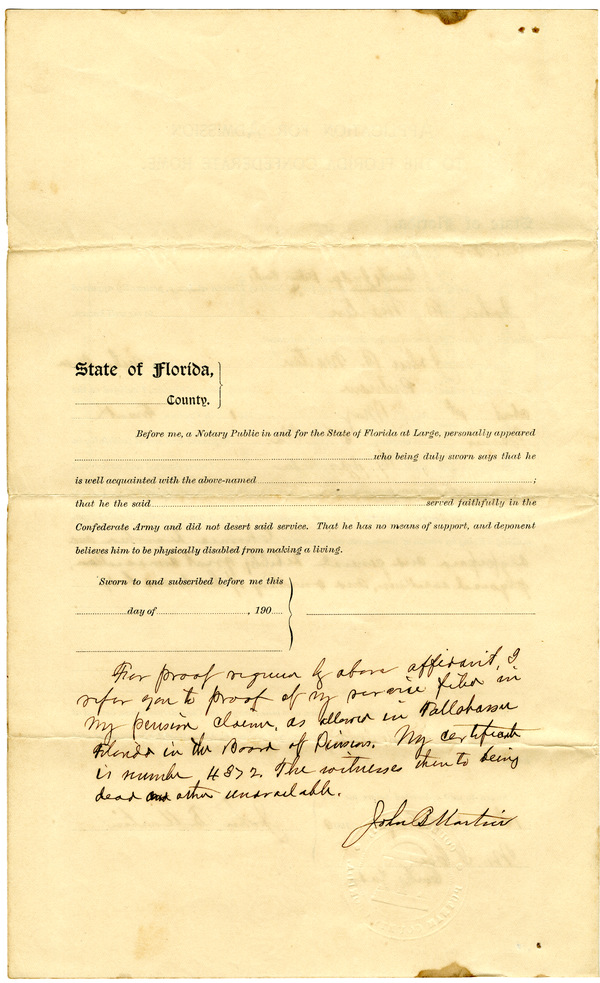 State of Florida,
County.
Before me, a Notary Public in and for the State of Florida at Large, personally appeared
who being duly sworn says that he
is well acquainted with the above-named ;
that he the said served faithfully in the
Confederate Army and did not desert said service. That he has no means of support, and deponent
believes him to be physically disabled from making a living.
Sworn to and subscribed before me this
day of , 190
For proof required by above affidavit, I
refer you to proof of my service filed in
my pension claim, as allowed in Tallahassee
Florida in the Board of Pensions. My certificate
is number 4872. The witnesses then to being
dead and other unavailable.
John B Martin